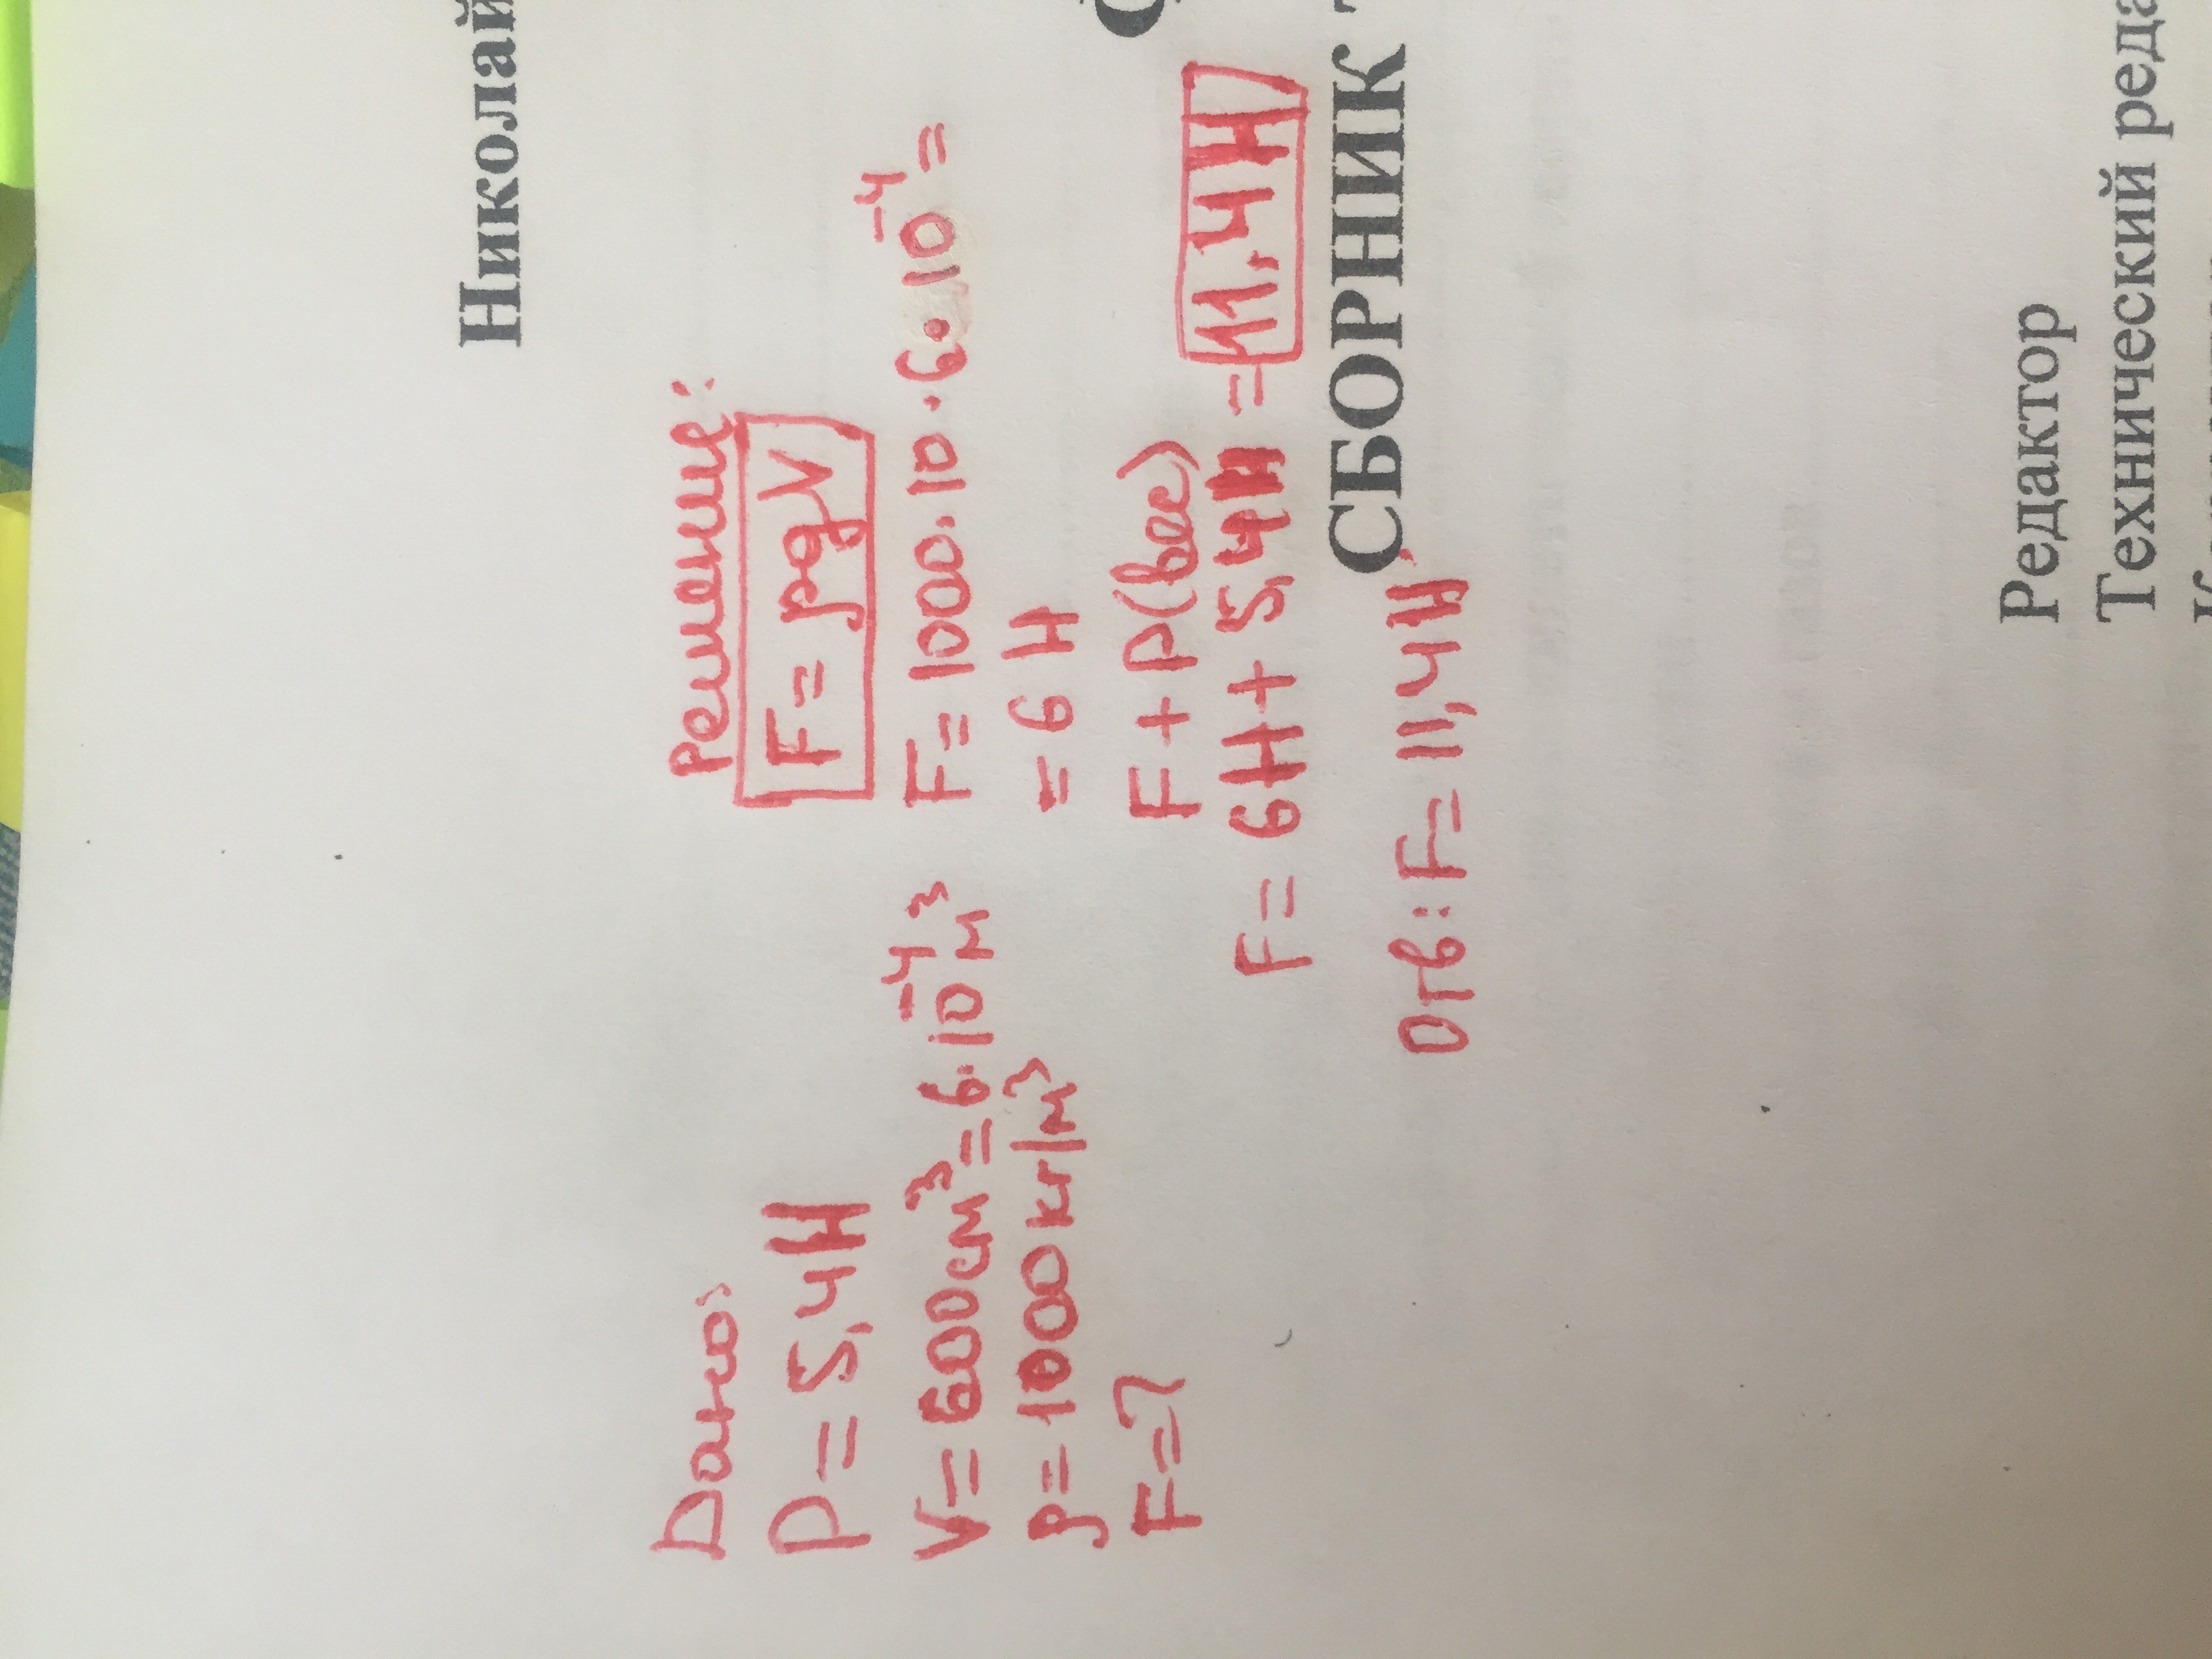 Николай
Дано:
P = 5,4Н
V = 600см³ = 6·10⁻⁴м³
ρ = 1000кг/м³
F = ?
Решение:
F = ρgV
F = 1000·10·6·10⁻⁴ =
= 6 Н
F + P(вес)
F = 6Н + 5,4Н = 11,4Н
СБОРНИК
Отв: F = 11,4Н
Редактор
Технический